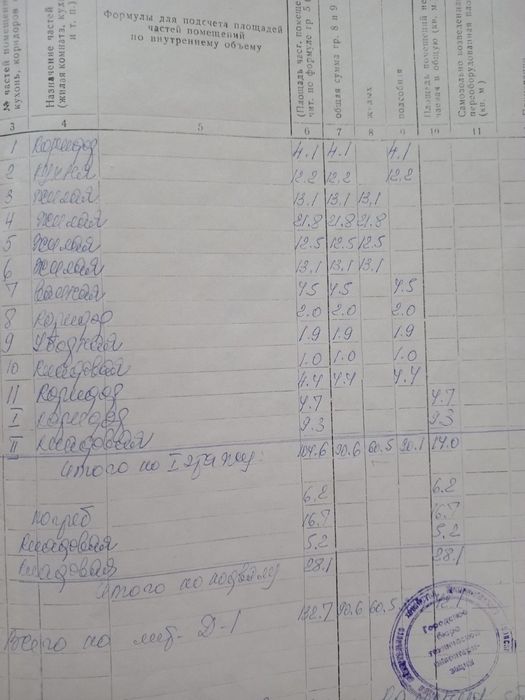 № частей помещений
кухонь, коридоров
Назначение частей
(жилая комната, кух
и т. п.)
Формулы для подсчета площадей
частей помещений
по внутреннему объему
(Площадь част. помеще
чит. по формуле гр 5
общая сумма гр. 8 и 9
жилых
подсобн
Площадь помещений не
чаемая в общую (кв. м
Самовольно возведенная
переоборудованная площ
(кв. м)
3 4 5 6 7 8 9 10 11
1 Коридор 4.1 4.1 4.1
2 Кухня 12.2 12.2 12.2
3 Жилая 13.1 13.1 13.1
4 Жилая 21.8 21.8 21.8
5 Жилая 12.5 12.5 12.5
6 Жилая 13.1 13.1 13.1
7 Ванная 4.5 4.5 4.5
8 Коридор 2.0 2.0 2.0
9 Уборная 1.9 1.9 1.9
10 Кладовая 1.0 1.0 1.0
11 Коридор 4.4 4.4 4.4
I Коридор 4.7 4.7
II Кладовая 9.3 9.3
Итого по I этажу: 104.6 90.6 60.5 30.1 14.0
Погреб 6.2 6.2
Кладовая 16.7 16.7
Кладовая 5.2 5.2
Итого по подвалу 28.1 28.1
Всего по лит. Д-1 132.7 90.6 60.5
Городское
бюро
технической
инвентари-
зации